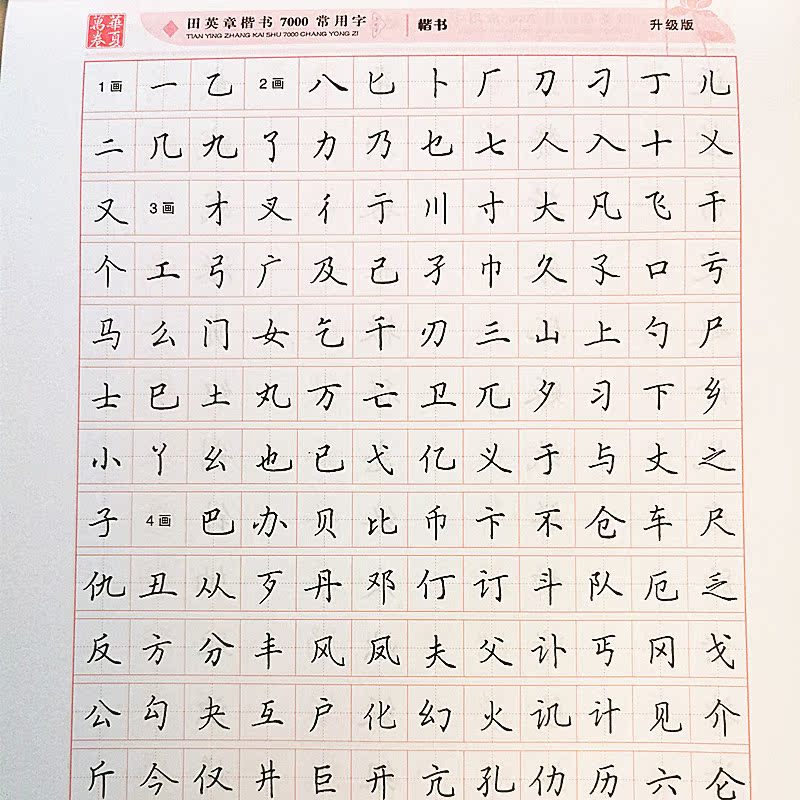 華夏萬卷
田英章楷书 7000 常用字
TIAN YING ZHANG KAI SHU 7000 CHANG YONG ZI
楷书
升级版
1画 一 乙 2画 八 匕 卜 厂 刀 刁 丁 儿
二 几 九 了 力 乃 乜 七 人 入 十 乂
又 3画 才 叉 彳 亍 川 寸 大 凡 飞 干
个 工 弓 广 及 己 孑 巾 久 孓 口 亏
马 么 门 女 乞 千 刃 三 山 上 勺 尸
士 巳 土 丸 万 亡 卫 兀 夕 习 下 乡
小 丫 幺 也 已 弋 亿 义 于 与 丈 之
子 4画 巴 办 贝 比 币 卞 不 仓 车 尺
仇 丑 从 歹 丹 邓 仃 订 斗 队 厄 乏
反 方 分 丰 风 凤 夫 父 讣 丐 冈 戈
公 勾 夬 互 户 化 幻 火 讥 计 见 介
斤 今 仅 井 巨 开 亢 孔 仂 历 六 仑